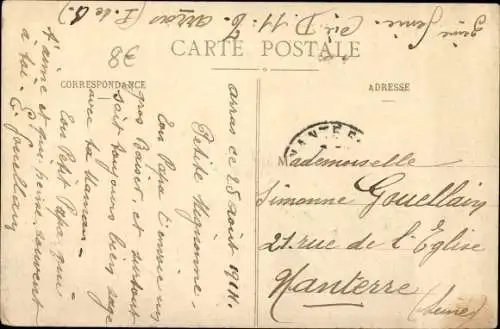 3ème Génie. Cie D. 11. 6. Arras (P. de C.)
38
CARTE POSTALE
CORRESPONDANCE
ADRESSE
Arras ce 25 août 1914.
Petite Mignonne.
Ton Papa t'envoie un
gros Baiser, et surtout
soit toujours bien sage
avec ta maman.
Ton Petit Papa qui
t'aime et qui pense souvent
à toi. G. Gouellain
NANTERRE
Mademoiselle
Simonne Gouellain
21. rue de l'Eglise
Nanterre
(Seine)